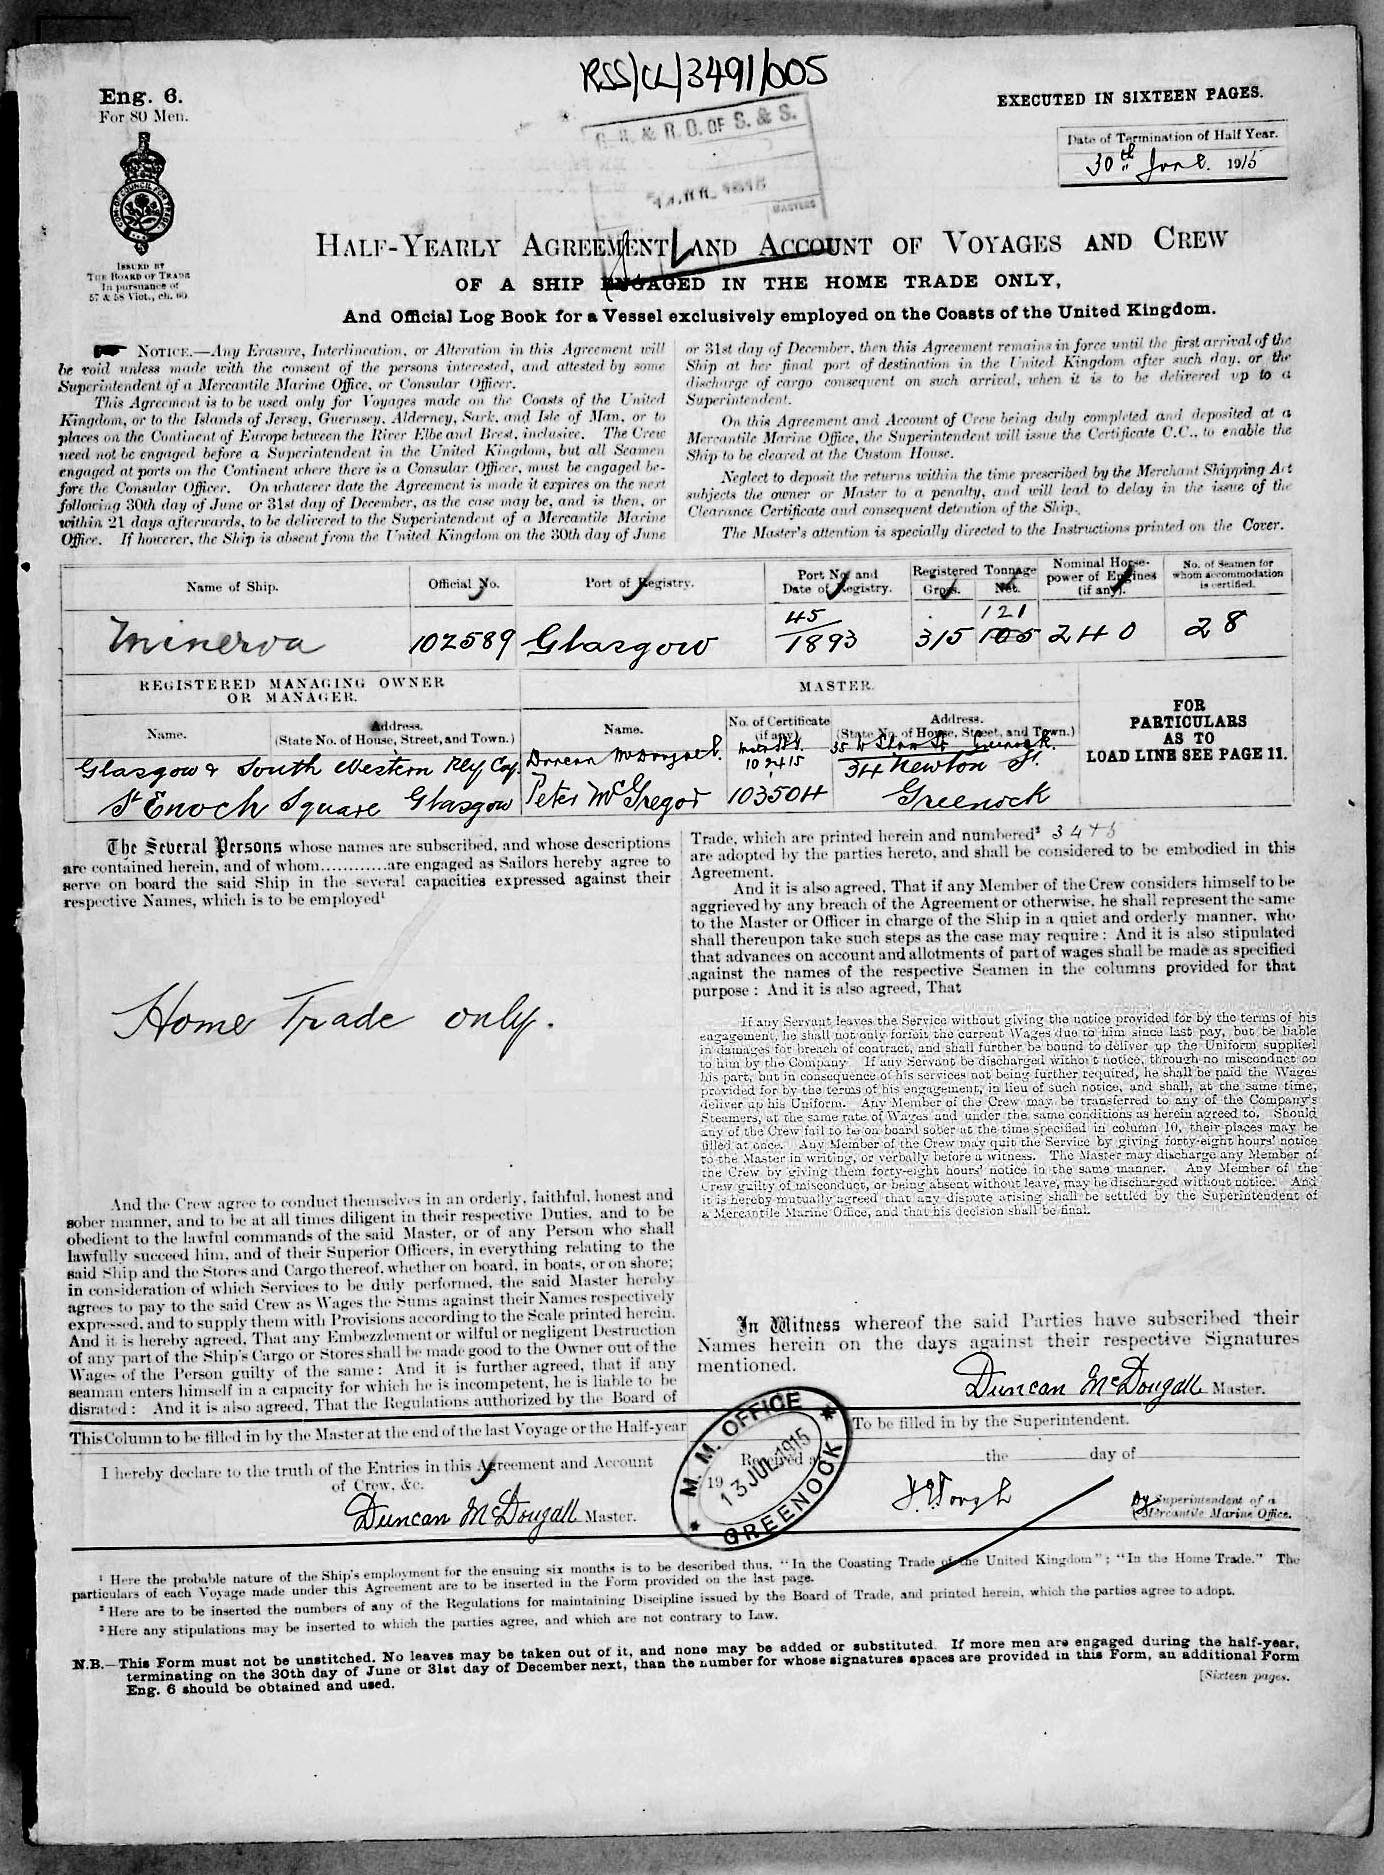 RSS/CL/3491/005
Eng. 6.
For 80 Men.
EXECUTED IN SIXTEEN PAGES.
& R. O. OF S. & S.
MASTERS
Date of Termination of Half Year.
30th June 1915
ISSUED BY
THE BOARD OF TRADE
In pursuance of
57 & 58 Vict., ch. 60
HALF-YEARLY AGREEMENT AND ACCOUNT OF VOYAGES AND CREW
OF A SHIP ENGAGED IN THE HOME TRADE ONLY,
And Official Log Book for a Vessel exclusively employed on the Coasts of the United Kingdom.
NOTICE.—Any Erasure, Interlineation, or Alteration in this Agreement will
be void unless made with the consent of the persons interested, and attested by some
Superintendent of a Mercantile Marine Office, or Consular Officer.
This Agreement is to be used only for Voyages made on the Coasts of the United
Kingdom, or to the Islands of Jersey, Guernsey, Alderney, Sark, and Isle of Man, or to
places on the Continent of Europe between the River Elbe and Brest, inclusive. The Crew
need not be engaged before a Superintendent in the United Kingdom, but all Seamen
engaged at ports on the Continent where there is a Consular Officer, must be engaged be-
fore the Consular Officer. On whatever date the Agreement is made it expires on the next
following 30th day of June or 31st day of December, as the case may be, and is then, or
within 21 days afterwards, to be delivered to the Superintendent of a Mercantile Marine
Office. If however, the Ship is absent from the United Kingdom on the 30th day of June
or 31st day of December, then this Agreement remains in force until the first arrival of the
Ship at her final port of destination in the United Kingdom after such day, or the
discharge of cargo consequent on such arrival, when it is to be delivered up to a
Superintendent.
On this Agreement and Account of Crew being duly completed and deposited at a
Mercantile Marine Office, the Superintendent will issue the Certificate C.C., to enable the
Ship to be cleared at the Custom House.
Neglect to deposit the returns within the time prescribed by the Merchant Shipping Act
subjects the owner or Master to a penalty, and will lead to delay in the issue of the
Clearance Certificate and consequent detention of the Ship.
The Master's attention is specially directed to the Instructions printed on the Cover.
Name of Ship. Official No. Port of Registry. Port No. and Date of Registry. Registered Tonnage Gross. Net. Nominal Horse-power of Engines (if any). No. of Seamen for whom accommodation is certified.
Minerva 102589 Glasgow 45/1893 315 105 121 240 28
REGISTERED MANAGING OWNER
OR MANAGER.
MASTER.
Name. Address. (State No. of House, Street, and Town.)
Name. No. of Certificate (if any). Address. (State No. of House, Street, and Town.)
FOR
PARTICULARS
AS TO
LOAD LINE SEE PAGE 11.
Glasgow & South Western Rly Coy. Duncan McDougall. 102415 Greenock.
34 Newton St.
St Enoch Square Glasgow Peter McGregor 103504 Greenock
The Several Persons whose names are subscribed, and whose descriptions
are contained herein, and of whom............are engaged as Sailors hereby agree to
serve on board the said Ship in the several capacities expressed against their
respective Names, which is to be employed¹
Home Trade only.
And the Crew agree to conduct themselves in an orderly, faithful, honest and
sober manner, and to be at all times diligent in their respective Duties, and to be
obedient to the lawful commands of the said Master, or of any Person who shall
lawfully succeed him, and of their Superior Officers, in everything relating to the
said Ship and the Stores and Cargo thereof, whether on board, in boats, or on shore;
in consideration of which Services to be duly performed, the said Master hereby
agrees to pay to the said Crew as Wages the Sums against their Names respectively
expressed, and to supply them with Provisions according to the Scale printed herein.
And it is hereby agreed, That any Embezzlement or wilful or negligent Destruction
of any part of the Ship's Cargo or Stores shall be made good to the Owner out of the
Wages of the Person guilty of the same: And it is further agreed, that if any
seaman enters himself in a capacity for which he is incompetent, he is liable to be
disrated: And it is also agreed, That the Regulations authorized by the Board of
Trade, which are printed herein and numbered² 3 4 + 5
are adopted by the parties hereto, and shall be considered to be embodied in this
Agreement.
And it is also agreed, That if any Member of the Crew considers himself to be
aggrieved by any breach of the Agreement or otherwise, he shall represent the same
to the Master or Officer in charge of the Ship in a quiet and orderly manner, who
shall thereupon take such steps as the case may require: And it is also stipulated
that advances on account and allotments of part of wages shall be made as specified
against the names of the respective Seamen in the columns provided for that
purpose: And it is also agreed, That
If any Servant leaves the Service without giving the notice provided for by the terms of his
engagement, he shall not only forfeit the current Wages due to him since last pay, but be liable
in damages for breach of contract, and shall further be bound to deliver up the Uniform supplied
to him by the Company. If any Servant be discharged without notice, through no misconduct on
his part, but in consequence of his services not being further required, he shall be paid the Wages
provided for by the terms of his engagement, in lieu of such notice, and shall, at the same time,
deliver up his Uniform. Any Member of the Crew may be transferred to any of the Company's
Steamers, at the same rate of Wages and under the same conditions as herein agreed to. Should
any of the Crew fail to be on board sober at the time specified in column 10, their places may be
filled at once. Any Member of the Crew may quit the Service by giving forty-eight hours' notice
to the Master in writing, or verbally before a witness. The Master may discharge any Member of
the Crew by giving them forty-eight hours' notice in the same manner. Any Member of the
Crew guilty of misconduct, or being absent without leave, may be discharged without notice. And
it is hereby mutually agreed that any dispute arising shall be settled by the Superintendent of
a Mercantile Marine Office, and that his decision shall be final.
In Witness whereof the said Parties have subscribed their
Names herein on the days against their respective Signatures
mentioned.
Duncan McDougall Master.
This Column to be filled in by the Master at the end of the last Voyage or the Half-year
I hereby declare to the truth of the Entries in this Agreement and Account
of Crew, &c.
Duncan McDougall Master.
M. M. OFFICE
13 JUL 1915
GREENOCK
To be filled in by the Superintendent.
Received at the day of
19
Dy Superintendent of a
Mercantile Marine Office.
¹ Here the probable nature of the Ship's employment for the ensuing six months is to be described thus, "In the Coasting Trade of the United Kingdom"; "In the Home Trade." The
particulars of each Voyage made under this Agreement are to be inserted in the Form provided on the last page.
² Here are to be inserted the numbers of any of the Regulations for maintaining Discipline issued by the Board of Trade, and printed herein, which the parties agree to adopt.
³ Here any stipulations may be inserted to which the parties agree, and which are not contrary to Law.
N.B.—This Form must not be unstitched. No leaves may be taken out of it, and none may be added or substituted. If more men are engaged during the half-year,
terminating on the 30th day of June or 31st day of December next, than the number for whose signatures spaces are provided in this Form, an additional Form
Eng. 6 should be obtained and used.
[Sixteen pages.